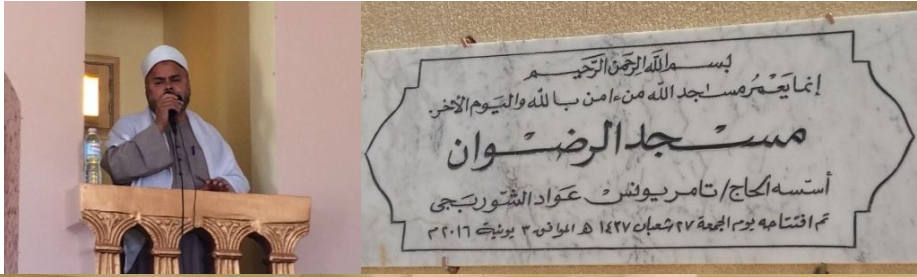 بسم الله الرحمن الرحيم
إنما يعمر مساجد الله من ءامن بالله واليوم الآخر
مسجد الرضوان
أسسه الحاج/ تامر يونس عواد الشوربجى
تم افتتاحه يوم الجمعة ٢٧ شعبان ١٤٣٧ هـ الموافق ٣ يونية ٢٠١٦ م